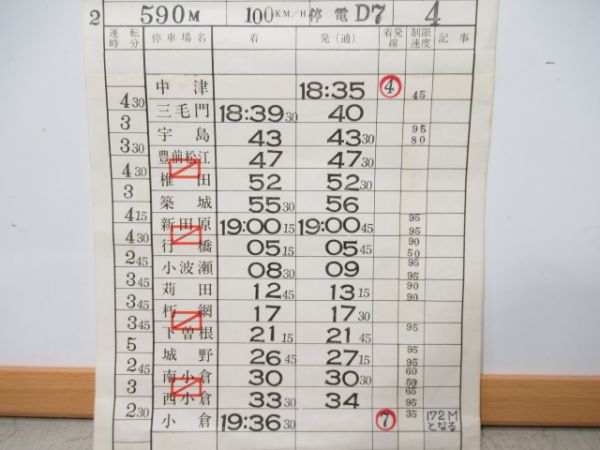 2 590M 100KM/H 停電D7 4
運転時分 停車場名 着 発(通) 着発線 制限速度 記事
中津 18:35 ④ 45
4 30
三毛門 18:39 30 40
3
宇島 43 43 30 95 80
3 30
豊前松江 47 47 30
4 30
椎田 52 52 30
3
築城 55 30 56
4 15
新田原 19:00 15 19:00 45 95 95
4 30
行橋 05 15 05 45 90 50
2 45
小波瀬 08 30 09 95 95
3 45
苅田 12 45 13 15 90 90
3 45
朽網 17 17 30
3 45
下曽根 21 15 21 45 95
5
城野 26 45 27 15 95 95
2 45
南小倉 30 30 30 60 50
3
西小倉 33 30 34 65 95
2 30
小倉 19:36 30 ⑦ 35 172Mとなる